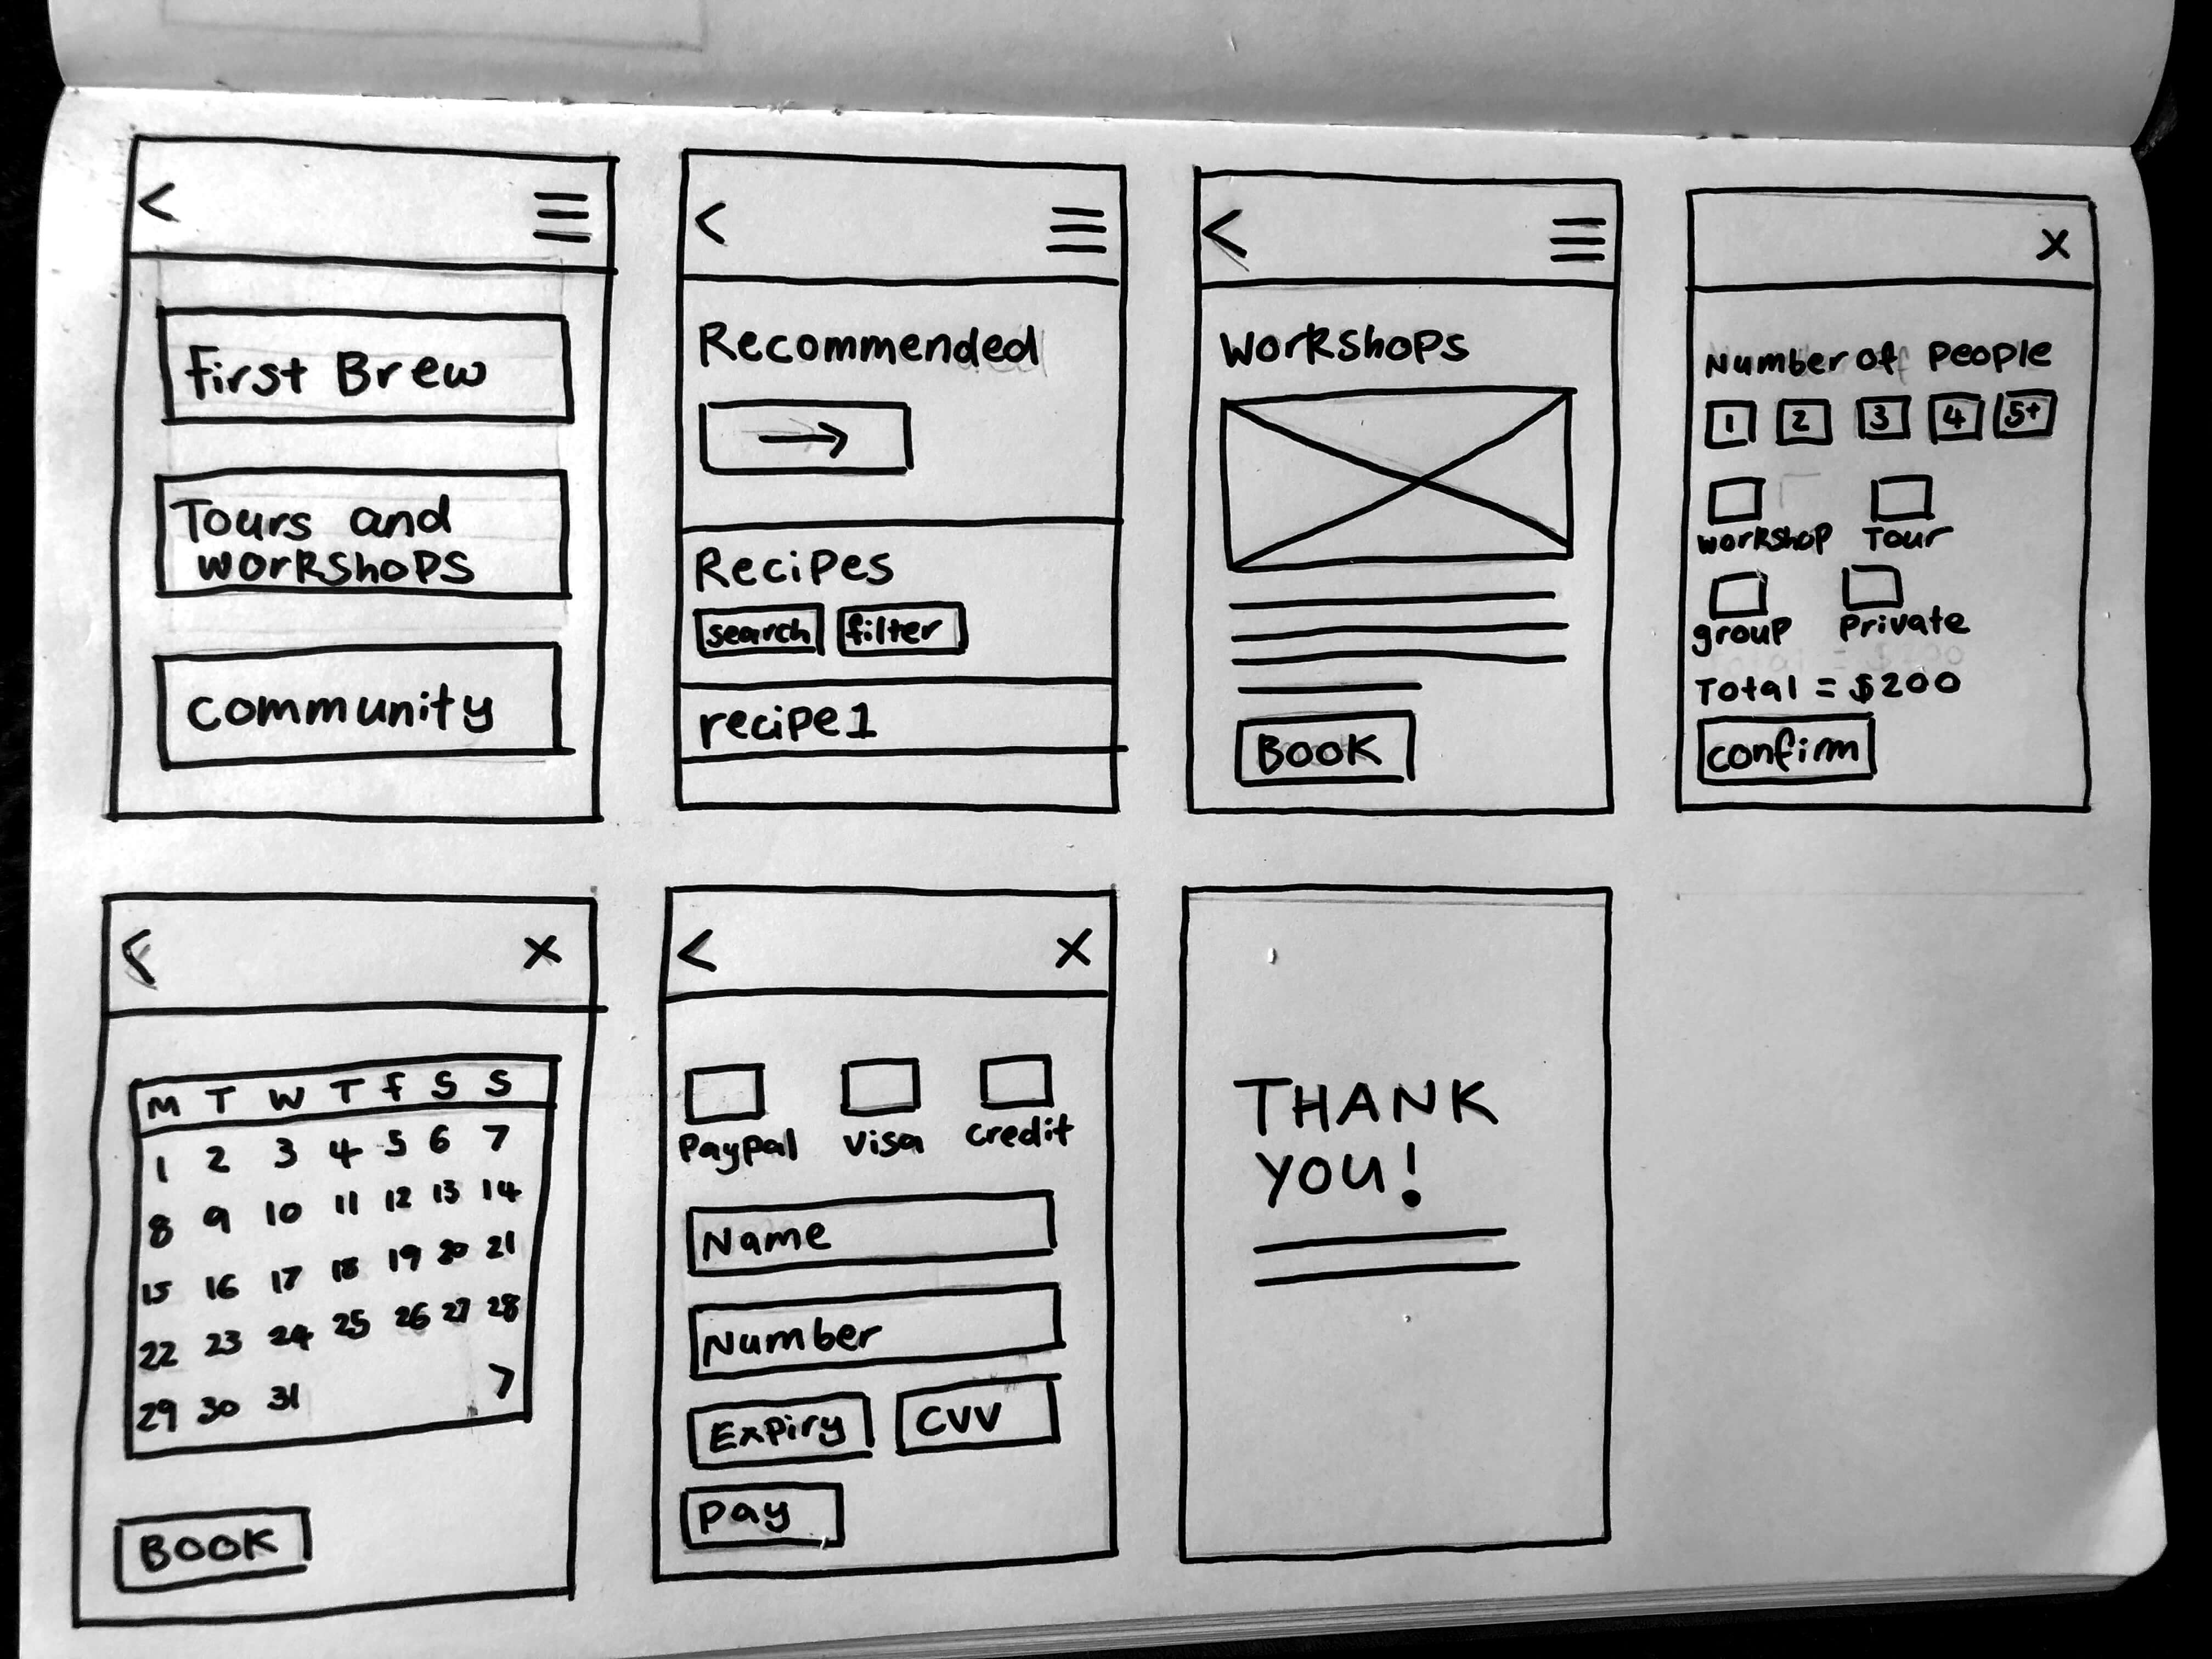 <
First Brew
Tours and
workshops
community
<
Recommended
→
Recipes
search filter
recipe1
<
Workshops
BOOK
X
Number of People
1 2 3 4 5+
workshop Tour
group Private
Total = $200
confirm
< X
M T W T F S S
1 2 3 4 5 6 7
8 9 10 11 12 13 14
15 16 17 18 19 20 21
22 23 24 25 26 27 28
29 30 31 >
BOOK
< X
PayPal Visa Credit
Name
Number
Expiry CVV
Pay
THANK
YOU!